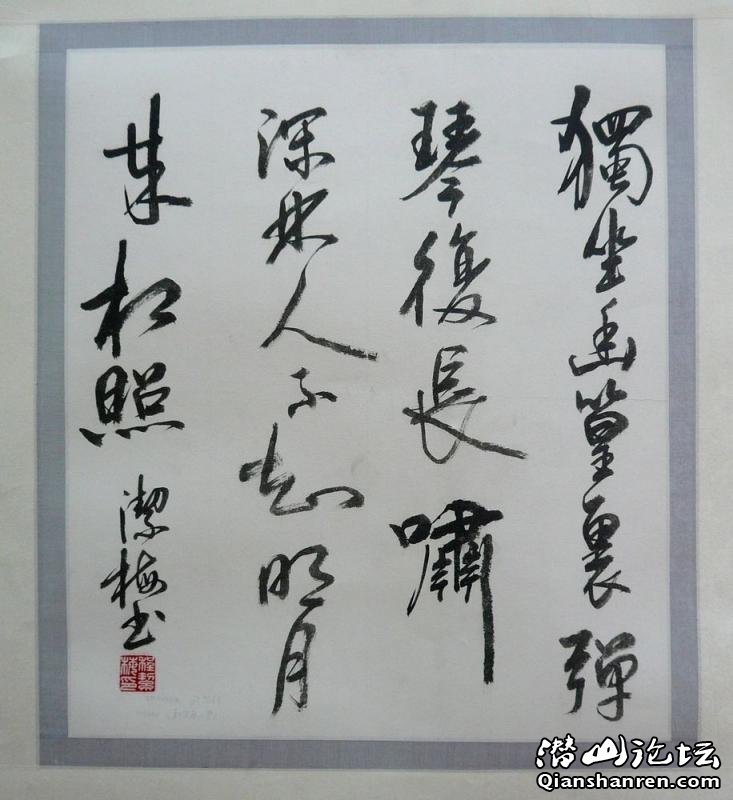 獨坐幽篁裏彈
琴復長嘯
深林人不知明月
来相照
潔梅书
潜山论坛
Qianshanren.com